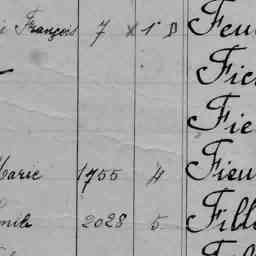 François 7 Feu
Fie
Fie
Marie 1755 4 Fieu
Emile 2028 5 Fill